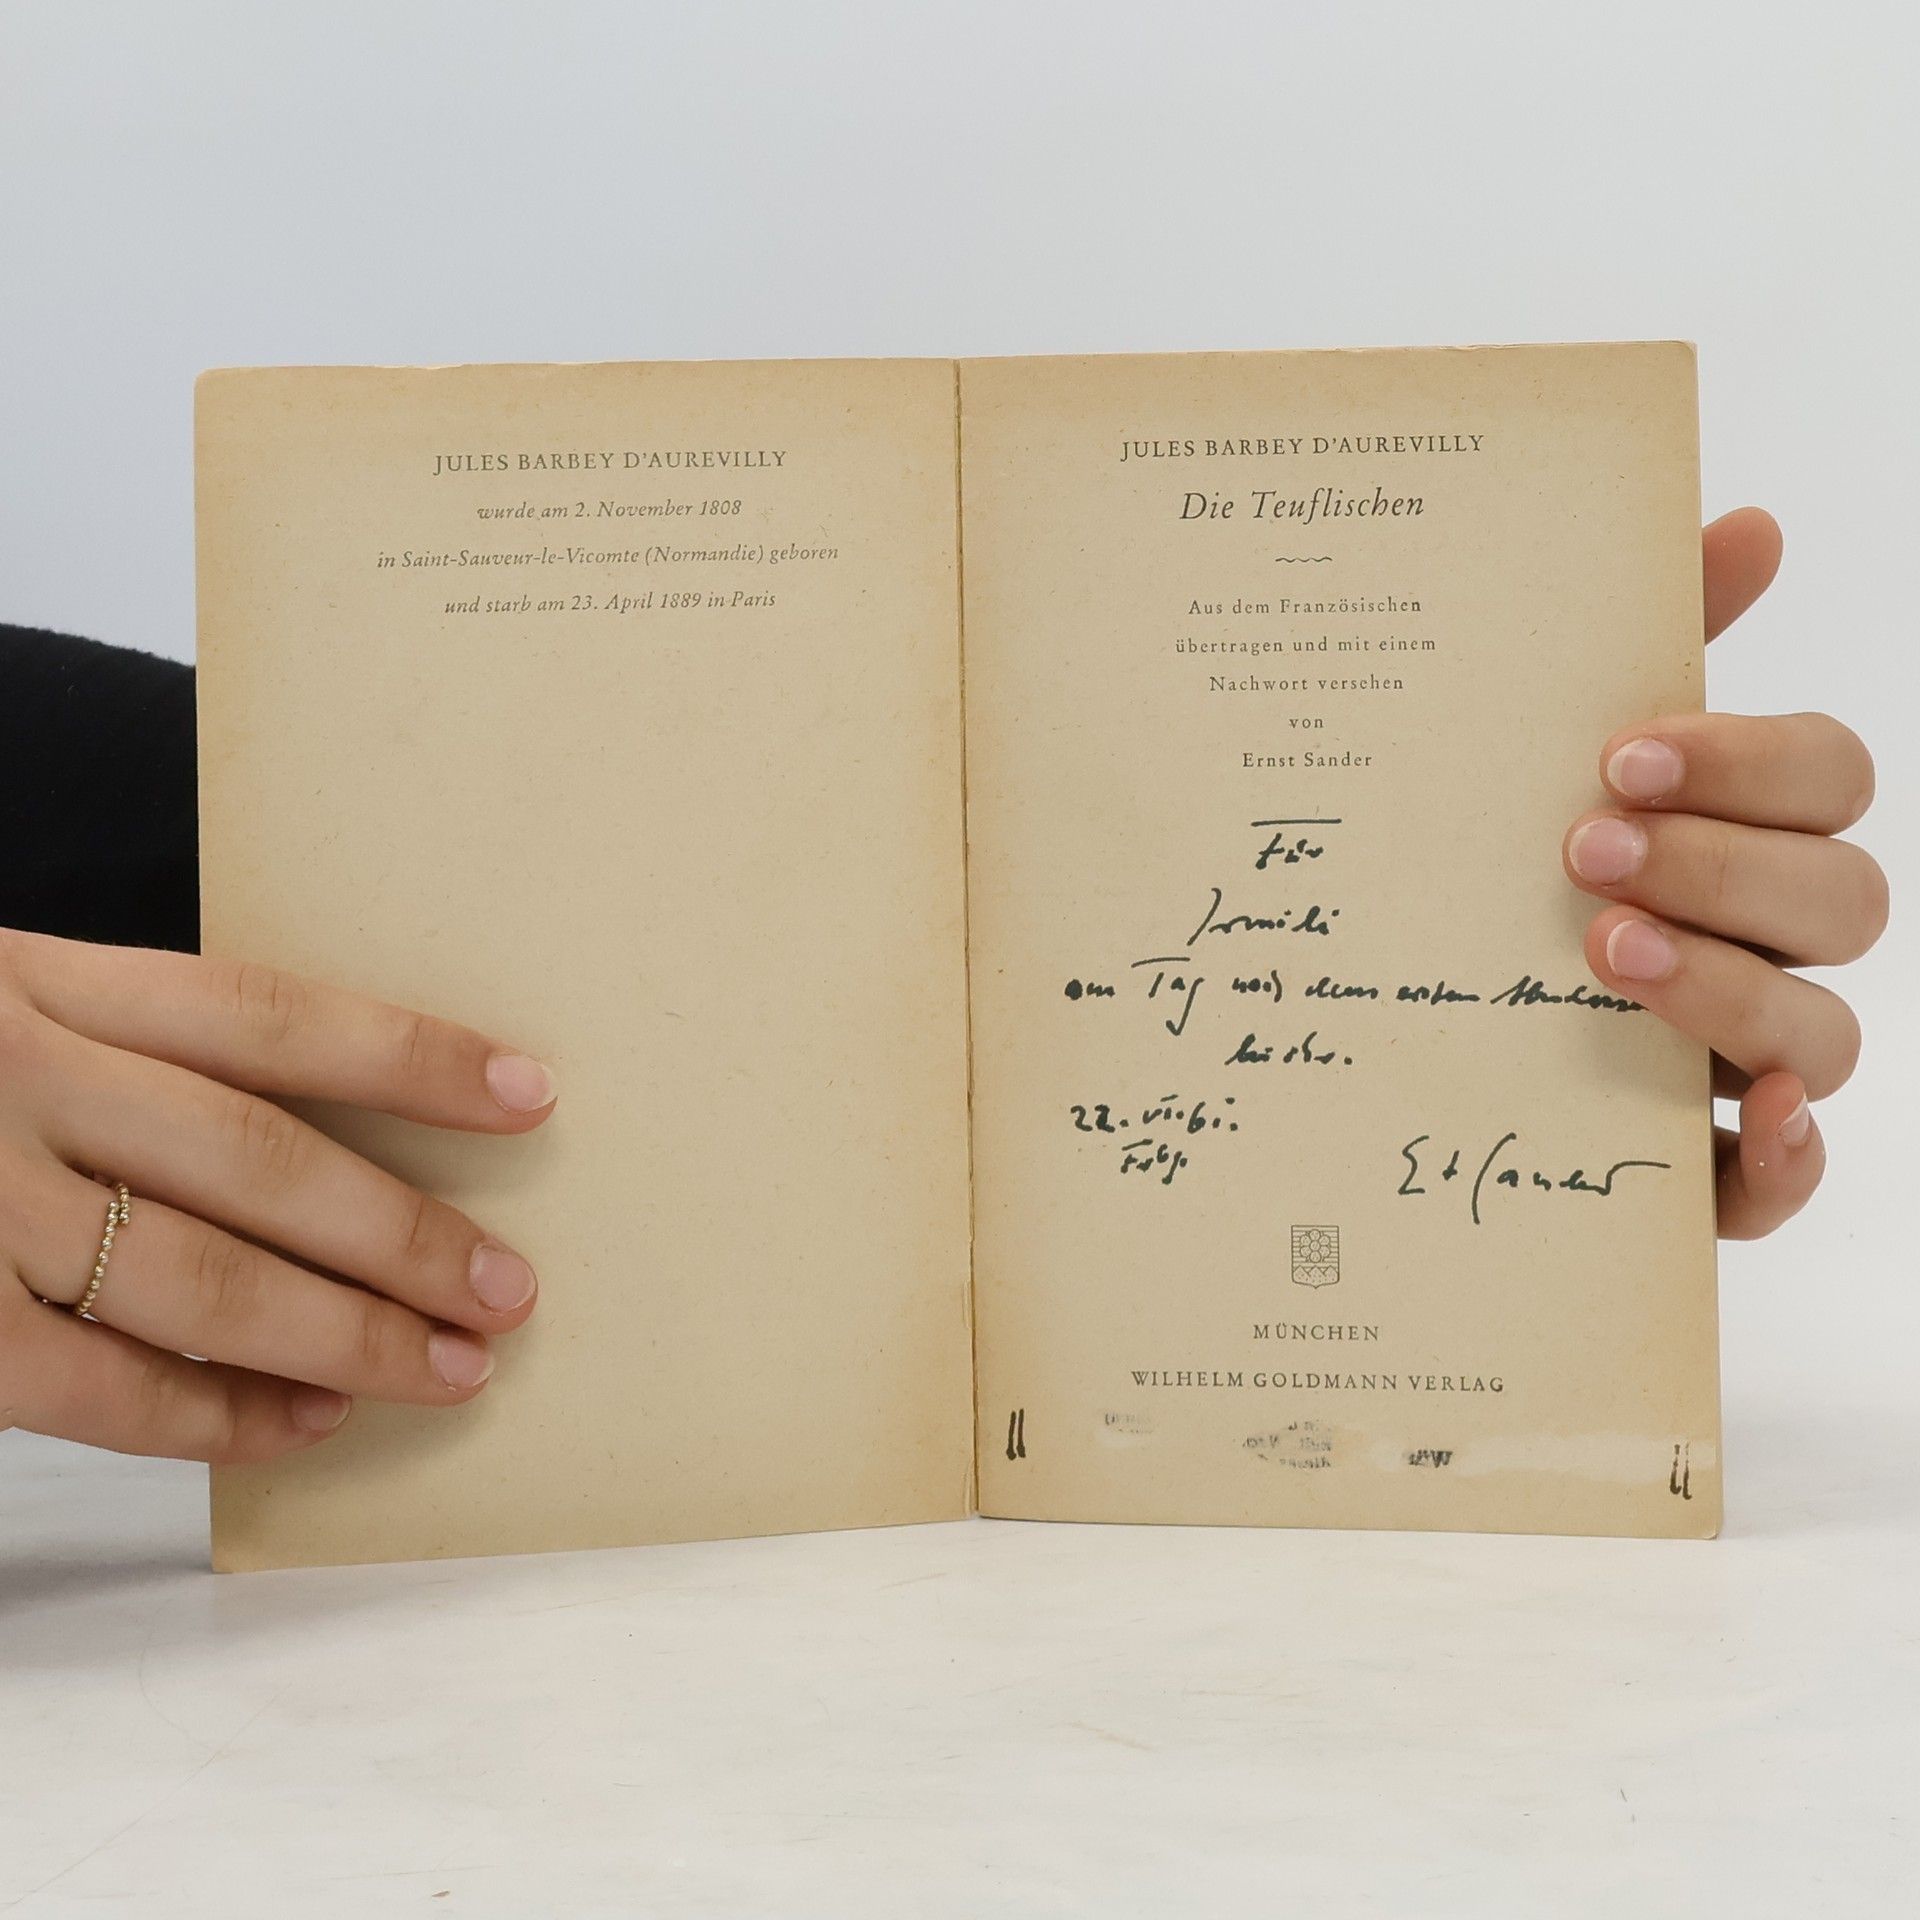 JULES BARBEY D'AUREVILLY
wurde am 2. November 1808
in Saint-Sauveur-le-Vicomte (Normandie) geboren
und starb am 23. April 1889 in Paris
JULES BARBEY D'AUREVILLY
Die Teuflischen
Aus dem Französischen
übertragen und mit einem
Nachwort versehen
von
Ernst Sander
Für
Irmili
am Tag nach dem ersten
22. VI. 61.
Frbg.
Et Sander
MÜNCHEN
WILHELM GOLDMANN VERLAG